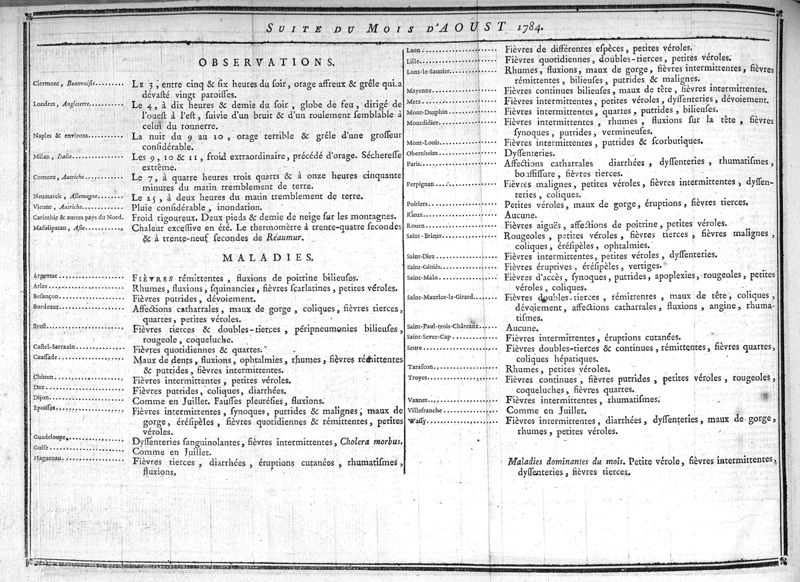 SUITE DU MOIS D'AOUST 1784.
OBSERVATIONS.
Clermont, Beauvoisis........ Le 3, entre cinq & six heures du soir, orage affreux & grêle qui a
dévasté vingt paroisses.
Londres, Angleterre......... Le 4, à dix heures & demie du soir, globe de feu, dirigé de
l'ouest à l'est, suivie d'un bruit & d'un roulement semblable à
celui du tonnerre.
Naples & environs.......... La nuit du 9 au 10, orage terrible & grêle d'une grosseur
considérable.
Milan, Italie............... Les 9, 10 & 11, froid extraordinaire, précédé d'orage. Sécheresse
extrême.
Comont, Autriche........... Le 7, à quatre heures trois quarts & à onze heures cinquante
minutes du matin tremblement de terre.
Neumarck, Allemagne........ Le 25, à deux heures du matin tremblement de terre.
Vienne, Autriche........... Pluie considérable, inondation.
Carinthie & autres pays du Nord. Froid rigoureux. Deux pieds & demie de neige sur les montagnes.
Masulipatan, Asie........... Chaleur excessive en été. Le thermomètre à trente-quatre secondes
& à trente-neuf secondes de Réaumur.
MALADIES.
Argentac.................. FIÈVRES rémittentes, fluxions de poitrine bilieuses.
Arles..................... Rhumes, fluxions, squinancies, fièvres scarlatines, petites véroles.
Besançon.................. Fièvres putrides, dévoiement.
Bordeaux.................. Affections catharrales, maux de gorge, coliques, fièvres tierces,
quartes, petites véroles.
Brest..................... Fièvres tierces & doubles-tierces, péripneumonies bilieuses,
rougeole, coqueluche.
Castel-Sarrazin............ Fièvres quotidiennes & quartes.
Caussade.................. Maux de dents, fluxions, ophtalmies, rhumes, fièvres rémittentes
& putrides, fièvres intermittentes.
Chinon.................... Fièvres intermittentes, petites véroles.
Dax....................... Fièvres putrides, coliques, diarrhées.
Dijon..................... Comme en Juillet. Fausses pleurésies, fluxions.
Epoisses................... Fièvres intermittentes, synoques, putrides & malignes, maux de
gorge, érésipèles, fièvres quotidiennes & rémittentes, petites
véroles.
Guadeloupe................ Dyssenteries sanguinolantes, fièvres intermittentes, Cholera morbus.
Guise..................... Comme en Juillet.
Haguenau,................. Fièvres tierces, diarrhées, éruptions cutanées, rhumatismes,
fluxions,
Laon...................... Fièvres de différentes espèces, petites véroles.
Lille..................... Fièvres quotidiennes, doubles-tierces, petites véroles.
Lons-le-Saunier........... Rhumes, fluxions, maux de gorge, fièvres intermittentes, fièvres
rémittentes, bilieuses, putrides & malignes.
Mayenne................... Fièvres continues bilieuses, maux de tête, fièvres intermittentes.
Metz...................... Fièvres intermittentes, petites véroles, dyssenteries, dévoiement.
Mont-Dauphin.............. Fièvres intermittentes, quartes, putrides, bilieuses.
Montdidier................ Fièvres intermittentes, rhumes, fluxions sur la tête, fièvres
synoques, putrides, vermineuses.
Mont-Louis................ Fièvres intermittentes, putrides & scorbutiques.
Obernheim................. Dyssenteries.
Paris..................... Affections catharrales diarrhées, dyssenteries, rhumatismes,
bouffissure, fièvres tierces.
Perpignan................. Fièvres malignes, petites véroles, fièvres intermittentes, dyssen-
teries, coliques.
Poitiers.................. Petites véroles, maux de gorge, éruptions, fièvres tierces.
Rieux..................... Aucune.
Rouen..................... Fièvres aiguës, affections de poitrine, petites véroles.
Saint-Brieux.............. Rougeoles, petites véroles, fièvres tierces, fièvres malignes,
coliques, érésipèles, ophtalmies.
Saint-Diez................ Fièvres intermittentes, petites véroles, dyssenteries.
Saint-Géniès.............. Fièvres éruptives, érésipèles, vertiges.
Saint-Malo................ Fièvres d'accès, synoques, putrides, apoplexies, rougeoles, petites
véroles, coliques.
Saint-Maurice-le-Girard....... Fièvres doubles-tierces, rémittentes, maux de tête, coliques,
dévoiement, affections catharrales, fluxions, angine, rhuma-
tismes.
Saint-Paul-trois-Châteaux..... Aucune.
Saint-Sever-Cap............ Fièvres intermittentes, éruptions cutanées.
Seure..................... Fièvres doubles-tierces & continues, rémittentes, fièvres quartes,
coliques hépatiques.
Tarascon,................. Rhumes, petites véroles.
Troyes.................... Fièvres continues, fièvres putrides, petites véroles, rougeoles,
coqueluches, fièvres quartes.
Vannes.................... Fièvres intermittentes, rhumatismes.
Villefranche.............. Comme en Juillet.
Wassy..................... Fièvres intermittentes, diarrhées, dyssenteries, maux de gorge,
rhumes, petites véroles.
Maladies dominantes du mois. Petite vérole, fièvres intermittentes,
dyssenteries, fièvres tierces.